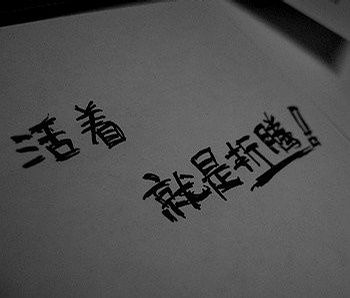 活着
就是折腾!